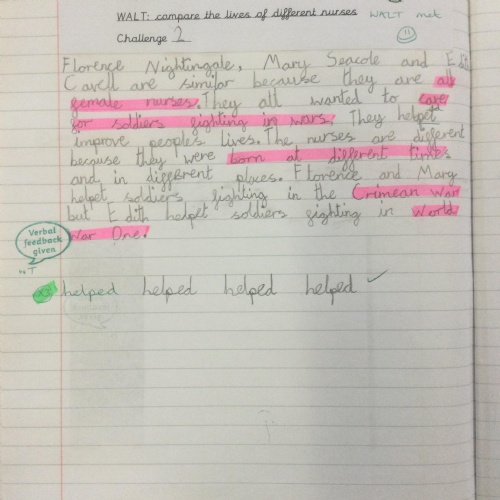 WALT: compare the lives of different nurses WALT met
Challenge 2
Florence Nightingale, Mary Seacole and Edith
Cavell are similar because they are all
female nurses. They all wanted to care
for soldiers fighting in wars. They helpet
improve peoples lives. The nurses are different
because they were born at different times
and in different places. Florence and Mary
helpet soldiers fighting in the Crimean War
but Edith helpet soldiers fighting in World
War One.
Verbal
feedback
given
helped helped helped helped